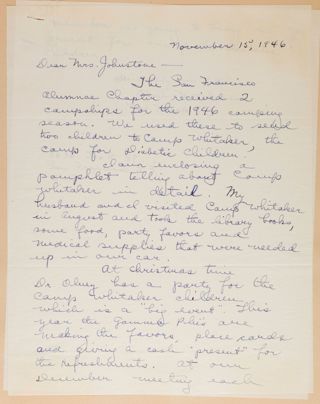 November 15, 1946
Dear Mrs. Johnstone —
The San Francisco
Alumnae Chapter received 2
camperships for the 1946 camping
season. We used these to send
two children to Camp Whitaker, the
camp for Diabetic Children.
I am enclosing a
pamphlet telling about Camp
Whitaker in detail. My
husband and I visited Camp Whitaker
in August and took the library books,
some food, party favors and
medical supplies that were needed
up in our car.
At Christmas time
Dr. Olney has a party for the
Camp Whitaker children
which is a "big event". This
year the Gamma Phi's are
making the favors, place cards
and giving a cash "present" for
the refreshments. At our
December meeting each